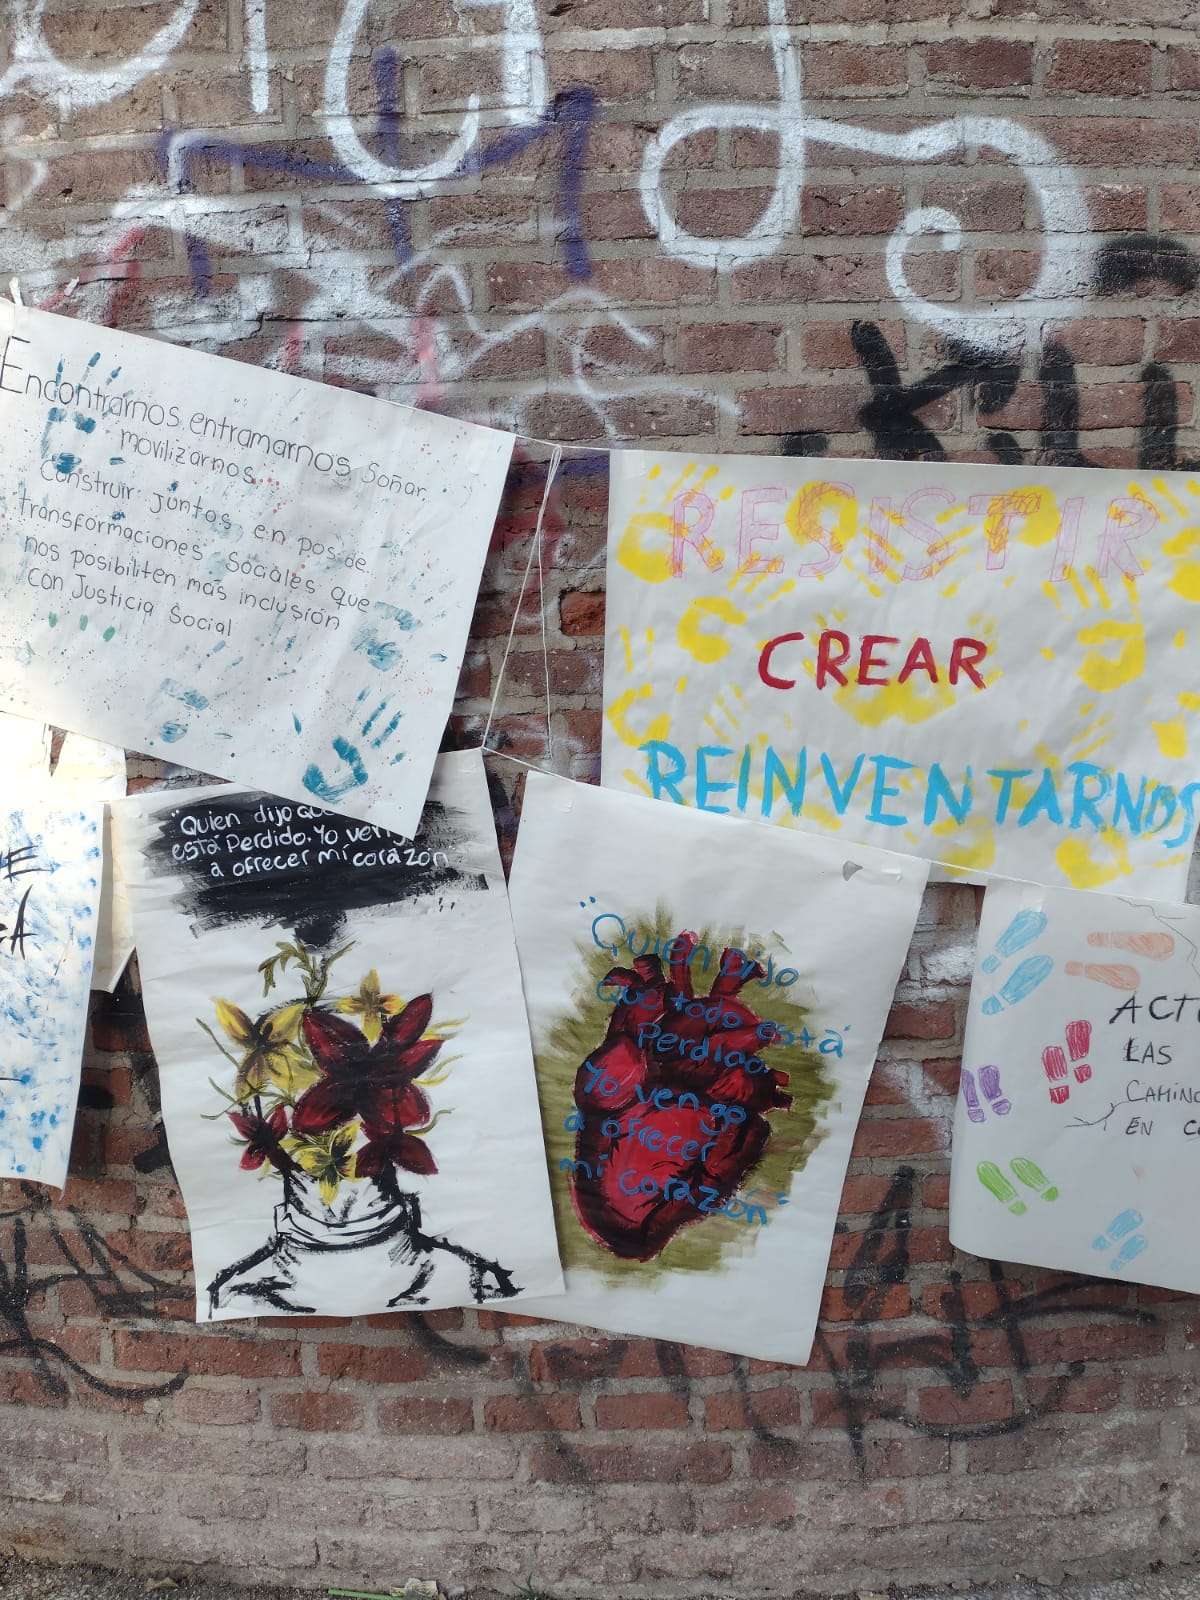 Encontrarnos entramarnos soñar,
movilizarnos...
Construir juntos, en pos de
transformaciones Sociales que
nos posibiliten más inclusión
con Justicia Social
RESISTIR
CREAR
REINVENTARNOS
"Quien dijo
está Perdido. Yo
a ofrecer mi corazón"
"Quien Dijo
Que todo está
Perdido.
Yo vengo
a ofrecer
mi corazón"
LAS
EN